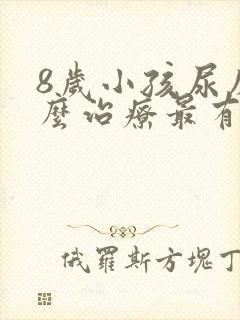 8歲小孩尿
麼治療最有
俄羅斯方塊丁